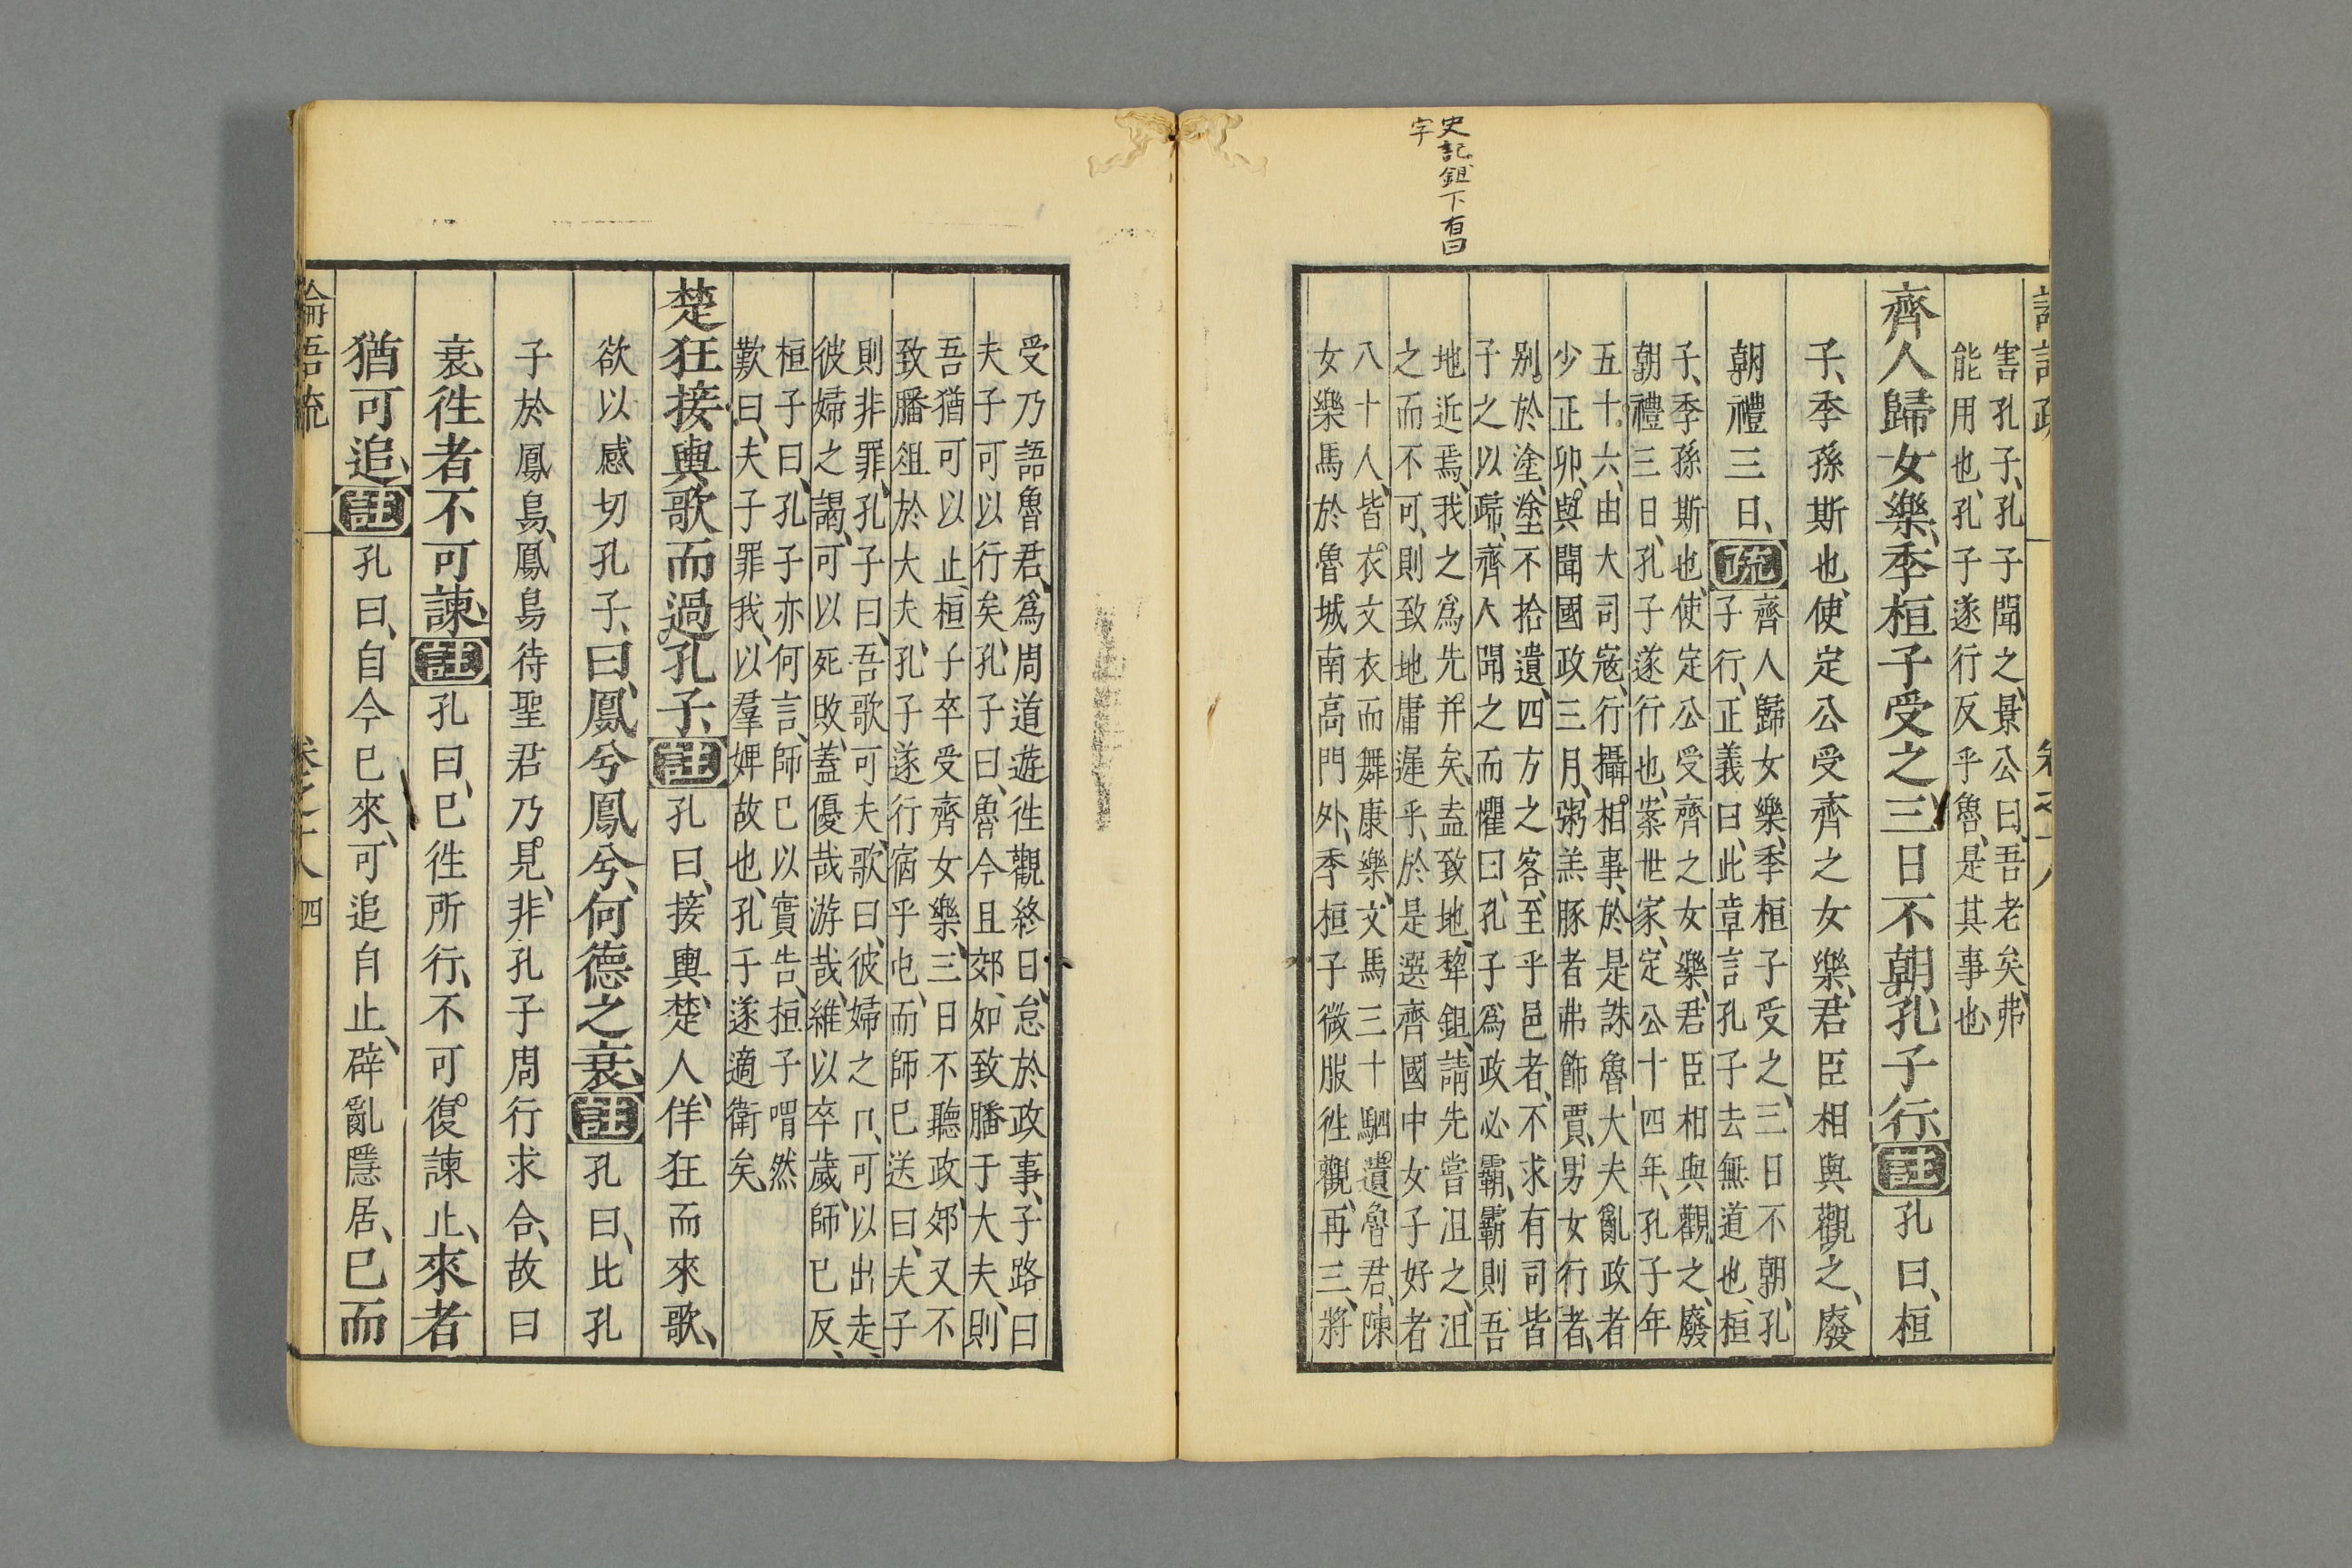 史記鉏下有曰
字
害孔子、孔子聞之、景公曰、吾老矣、弗
能用也、孔子遂行反乎魯、是其事也、
齊人歸女樂、季桓子受之、三日不朝、孔子行、註孔曰、桓
子、季孫斯也、使定公受齊之女樂、君臣相與觀之、廢
朝禮三日、疏
齊人歸女樂、季桓子受之、三日不朝、孔
子行、正義曰、此章言孔子去無道也、桓
子、季孫斯也、使定公受齊之女樂、君臣相與觀之、廢
朝禮三日、孔子遂行也、案世家、定公十四年、孔子年
五十六、由大司寇、行攝相事、於是誅魯大夫亂政者
少正卯、與聞國政三月、粥羔豚者弗飾賈、男女行者、
別於塗、塗不拾遺、四方之客、至乎邑者、不求有司皆
子之以歸、齊人聞之而懼曰、孔子爲政必霸、霸則吾
地近焉、我之爲先幷矣、盍致地、犂鉏、請先嘗沮之、沮
之而不可、則致地庸遲乎、於是選齊國中女子好者
八十人、皆衣文衣而舞康樂、文馬三十駟、遺魯君、陳
女樂馬於魯城南高門外、季桓子微服往觀、再三、將
受乃語魯君、爲周道遊往觀終日、怠於政事、子路曰
夫子可以行矣、孔子曰、魯今且郊、如致膰于大夫、則
吾猶可以止、桓子卒受齊女樂、三日不聽政、郊又不
致膰俎於大夫、孔子遂行宿乎屯、而師已送曰、夫子
則非罪、孔子曰、吾歌可夫、歌曰、彼婦之口、可以出走、
彼婦之謁、可以死敗、蓋優哉游哉、維以卒歲、師已反、
桓子曰、孔子亦何言、師已以實告、桓子喟然
歎曰、夫子罪我、以羣婢故也、孔子遂適衛矣、
楚狂接輿歌而過孔子、註孔曰、接輿、楚人、佯狂而來歌、
欲以感切孔子、曰、鳳兮鳳兮、何德之衰、註孔曰、比孔
子於鳳鳥、鳳鳥待聖君乃見、非孔子周行求合、故曰
衰、往者不可諫、註孔曰、已往所行、不可復諫止、來者
猶可追、註孔曰、自今已來、可追自止、辟亂隱居、已而
論吾疏
四